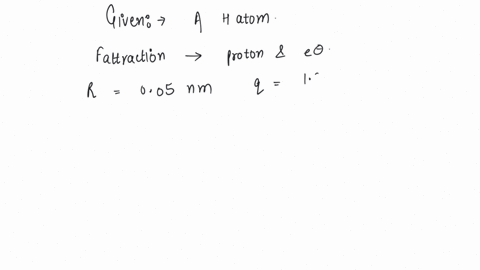 Given:→ A H atom.
Fattraction → proton & e⊖.
R = 0.05 nm q = 1.